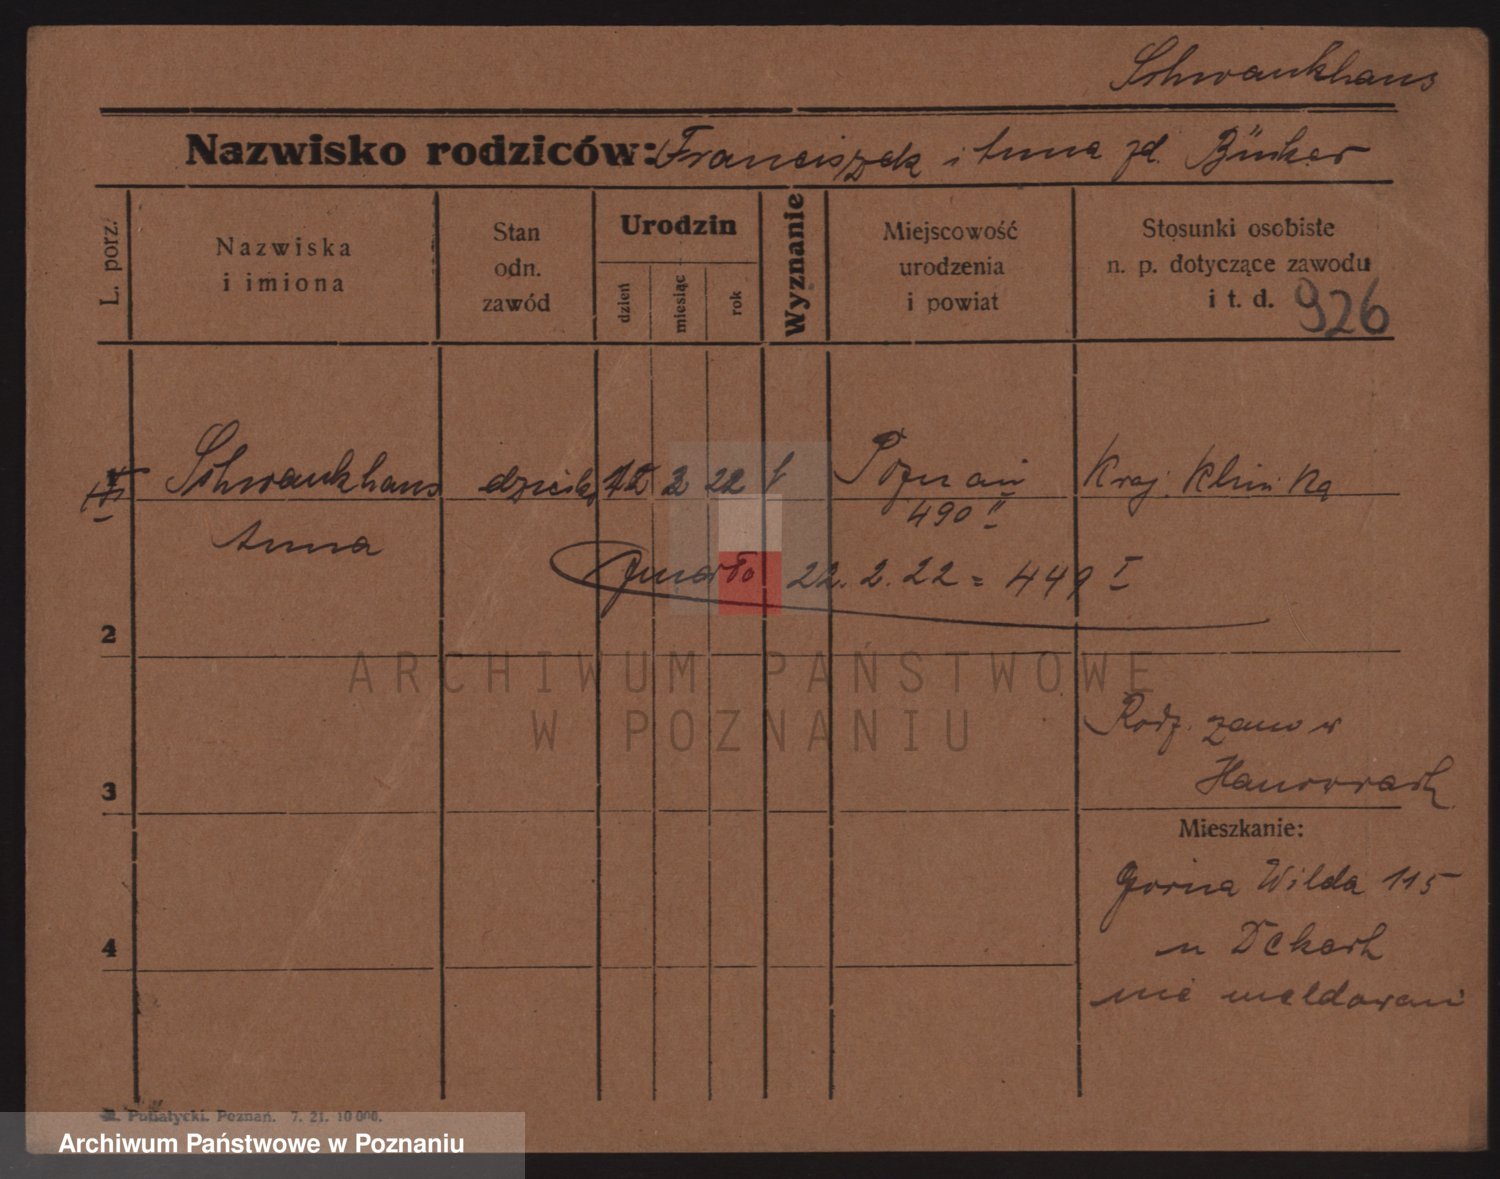 Schwankhaus
Nazwisko rodziców: Franciszek i Anna zd. Bünker
L. porz.
Nazwiska
i imiona
Stan
odn.
zawód
Urodzin
dzień
miesiąc
rok
Wyznanie
Miejscowość
urodzenia
i powiat
Stosunki osobiste
n. p. dotyczące zawodu
i t. d. 926
Schwankhaus dziecko 12 2 22 Poznań Kraj. Klinika
Anna 490 II
Zmarło 22.2.22 = 449 I
2
Rodz. zam w
3
Mieszkanie:
Górna Wilda 115
4
u Dekert
nie meldowani
Poznań. 7. 21. 10 000.
ARCHIWUM PAŃSTWOWE
W POZNANIU
Archiwum Państwowe w Poznaniu